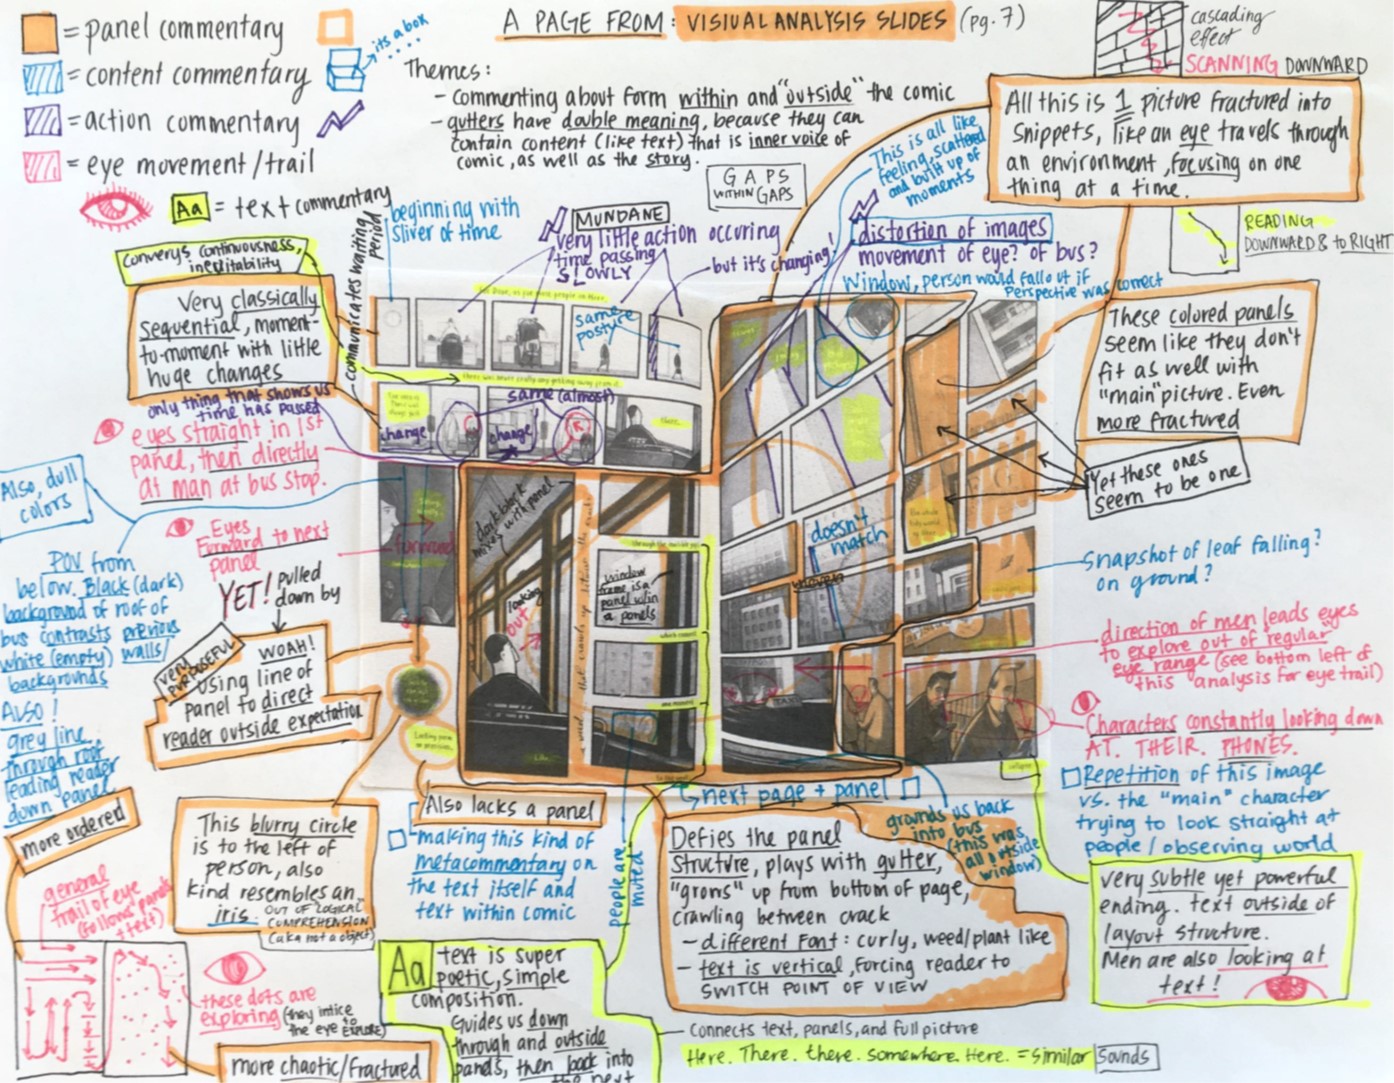 A PAGE FROM: VISIUAL ANALYSIS SLIDES (pg. 7)
= panel commentary
= content commentary
its a box
= action commentary
= eye movement/trail
Aa = text commentary
Themes:
- commenting about form within and "outside" the comic
- gutters have double meaning, because they can
contain content (like text) that is inner voice of
comic, as well as the story.
GAPS
WITHIN GAPS
cascading
effect
SCANNING DOWNWARD
All this is 1 picture fractured into
snippets, like an eye travels through
an environment, focusing on one
thing at a time.
This is all like
feeling, scattered
and built up of
moments
READING
DOWNWARD & to RIGHT
Converys continuousness,
inevitability
communicates waiting
period
beginning with
sliver of time
MUNDANE
very little action occuring
time passing
SLOWLY
but it's changing!
distortion of images
movement of eye? of bus?
Window, person would fall out if
perspective was correct
Very classically
sequential, moment-
to-moment with little
huge changes
same
posture
These colored panels
seem like they don't
fit as well with
"main" picture. Even
more fractured
only thing that shows us
time has passed
same (almost)
change
change
eyes straight in 1st
panel, then directly
at man at bus stop.
Yet these ones
seem to be one
Also, dull
colors
Eyes
forward to next
panel
forward
dark black
mixes with panel
looking
out
window
frame is a
panel w/in
a panels
doesn't
match
Snapshot of leaf falling?
on ground?
POV from
below. Black (dark)
background of roof of
bus contrasts previous
white (empty) walls/
backgrounds
Also!
grey line
through roof
leading reader
down panel
YET! pulled
down by
very
purposeful
WOAH!
using line of
panel to direct
reader outside expectation
direction of men leads eyes
to explore out of regular
eye range (see bottom left of
this analysis for eye trail)
Characters constantly looking down
AT. THEIR. PHONES.
Repetition of this image
vs. the "main" character
trying to look straight at
people/observing world
more ordered
This blurry circle
is to the left of
person, also
kind resembles an
iris. OUT OF LOGICAL
COMPREHENSION
(aka not a object)
Also lacks a panel
making this kind of
metacommentary on
the text itself and
text within comic
people are
muted
next page + panel
grounds us back
into bus
(this was
all outside
window)
Defies the panel
structure, plays with gutter,
"grows" up from bottom of page,
crawling between crack
- different font: curly, weed/plant like
- text is vertical, forcing reader to
SWITCH POINT OF VIEW
very subtle yet powerful
ending. text outside of
layout structure.
Men are also looking at
text!
general
trail of eye
(follows panels
+ text)
these dots are
exploring (they intice
the eye to EXPLORE)
more chaotic/fractured
Aa text is super
poetic, simple
composition.
Guides us down
through and outside
panels, then back into
the next
Connects text, panels, and full picture
Here. There. there. somewhere. Here. = similar sounds